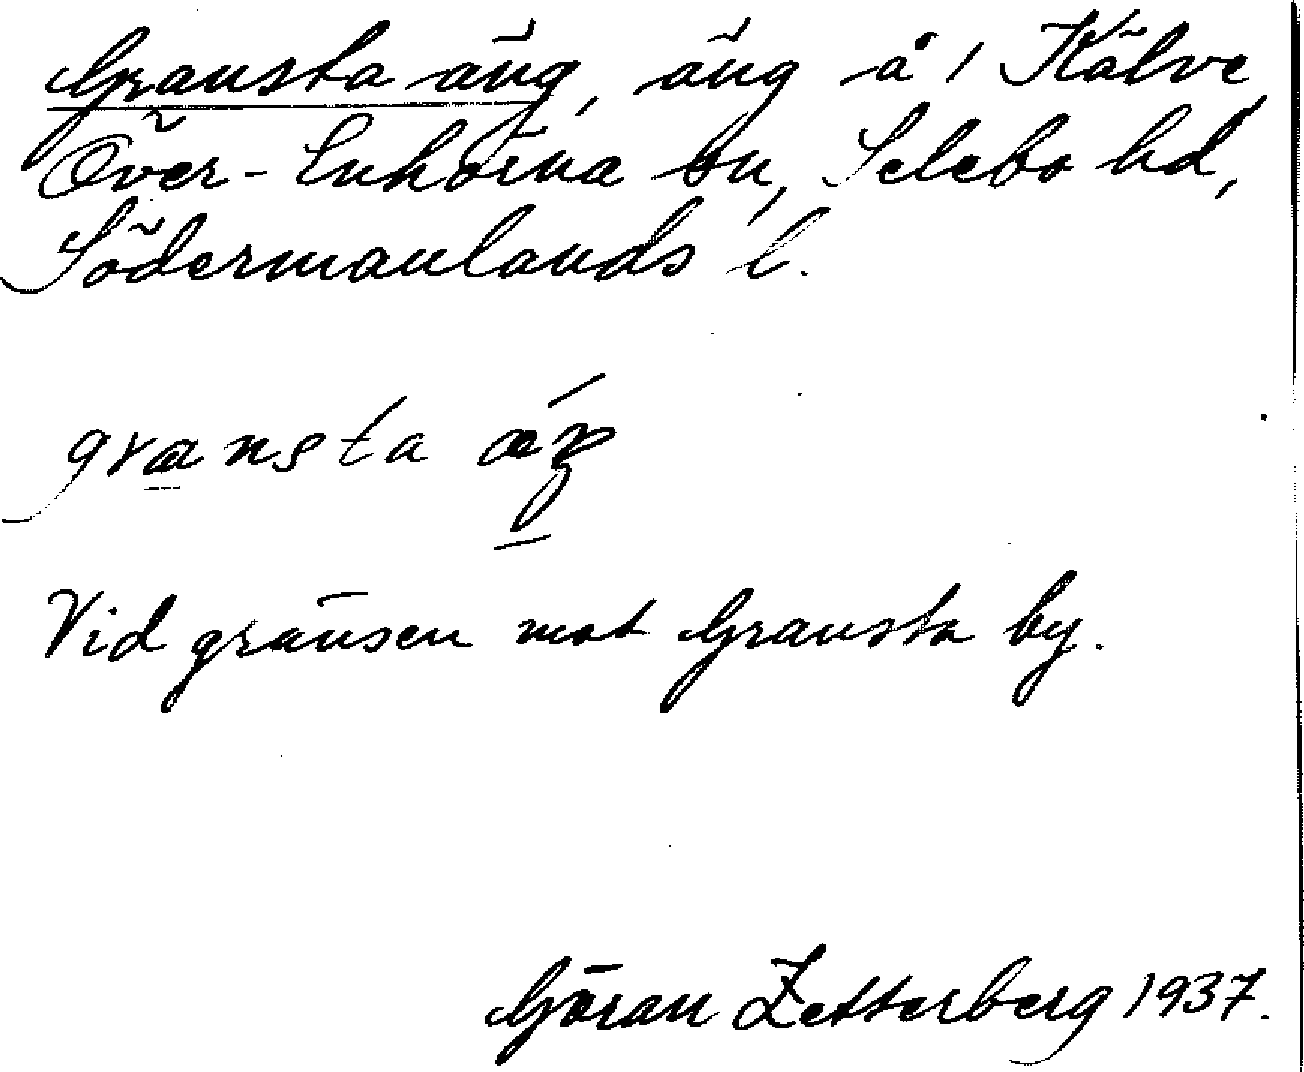 Gransta äng, äng å 1 Kälve,
Över-Enhörna sn, Selebo hd,
Södermanlands l.
gransta æŋ́
Vid gränsen mot Gransta by.
Göran Zetterberg 1937.